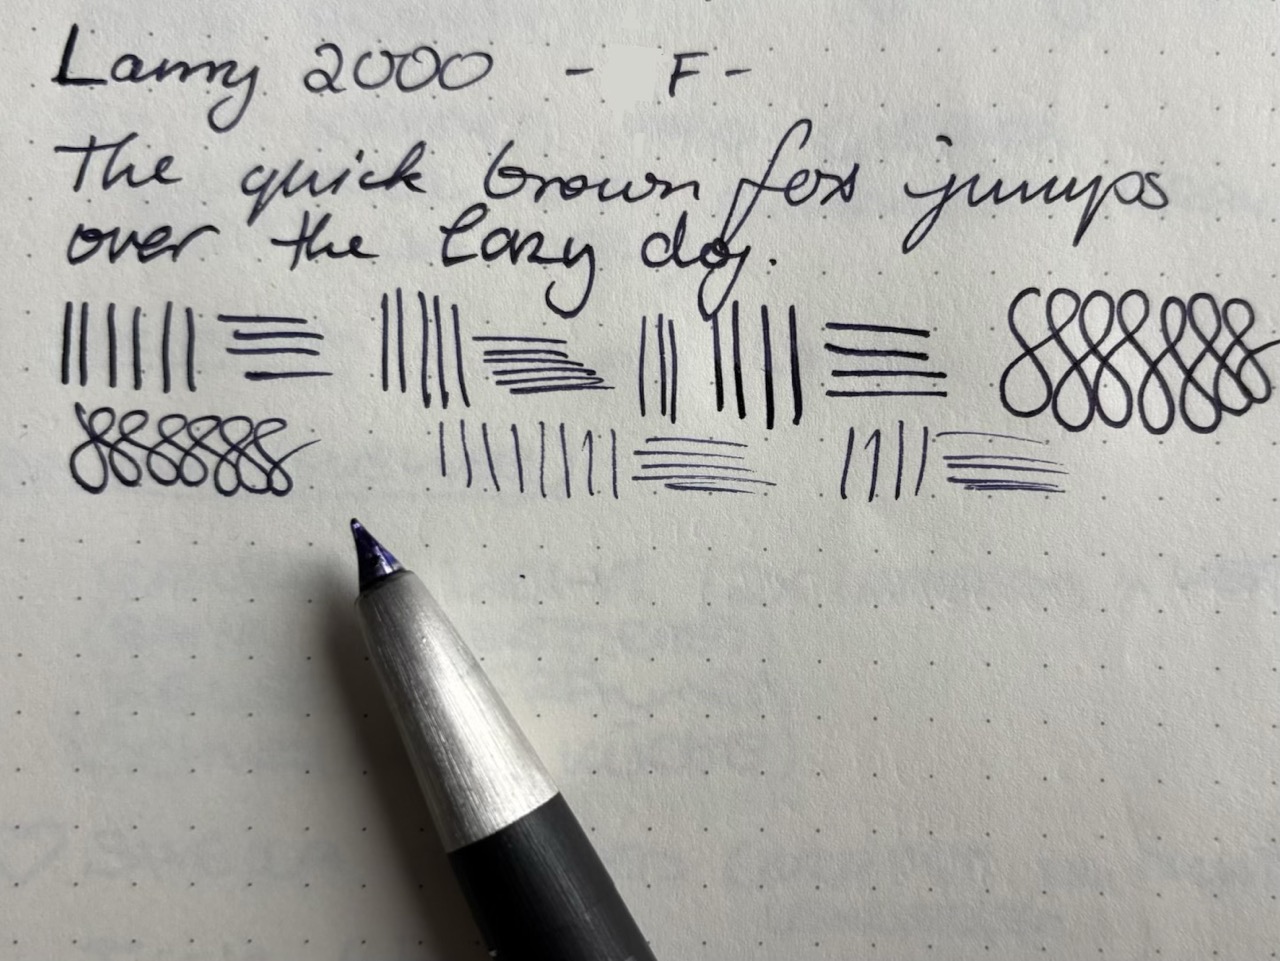 Lamy 2000 - F -
The quick brown fox jumps
over the lazy dog.